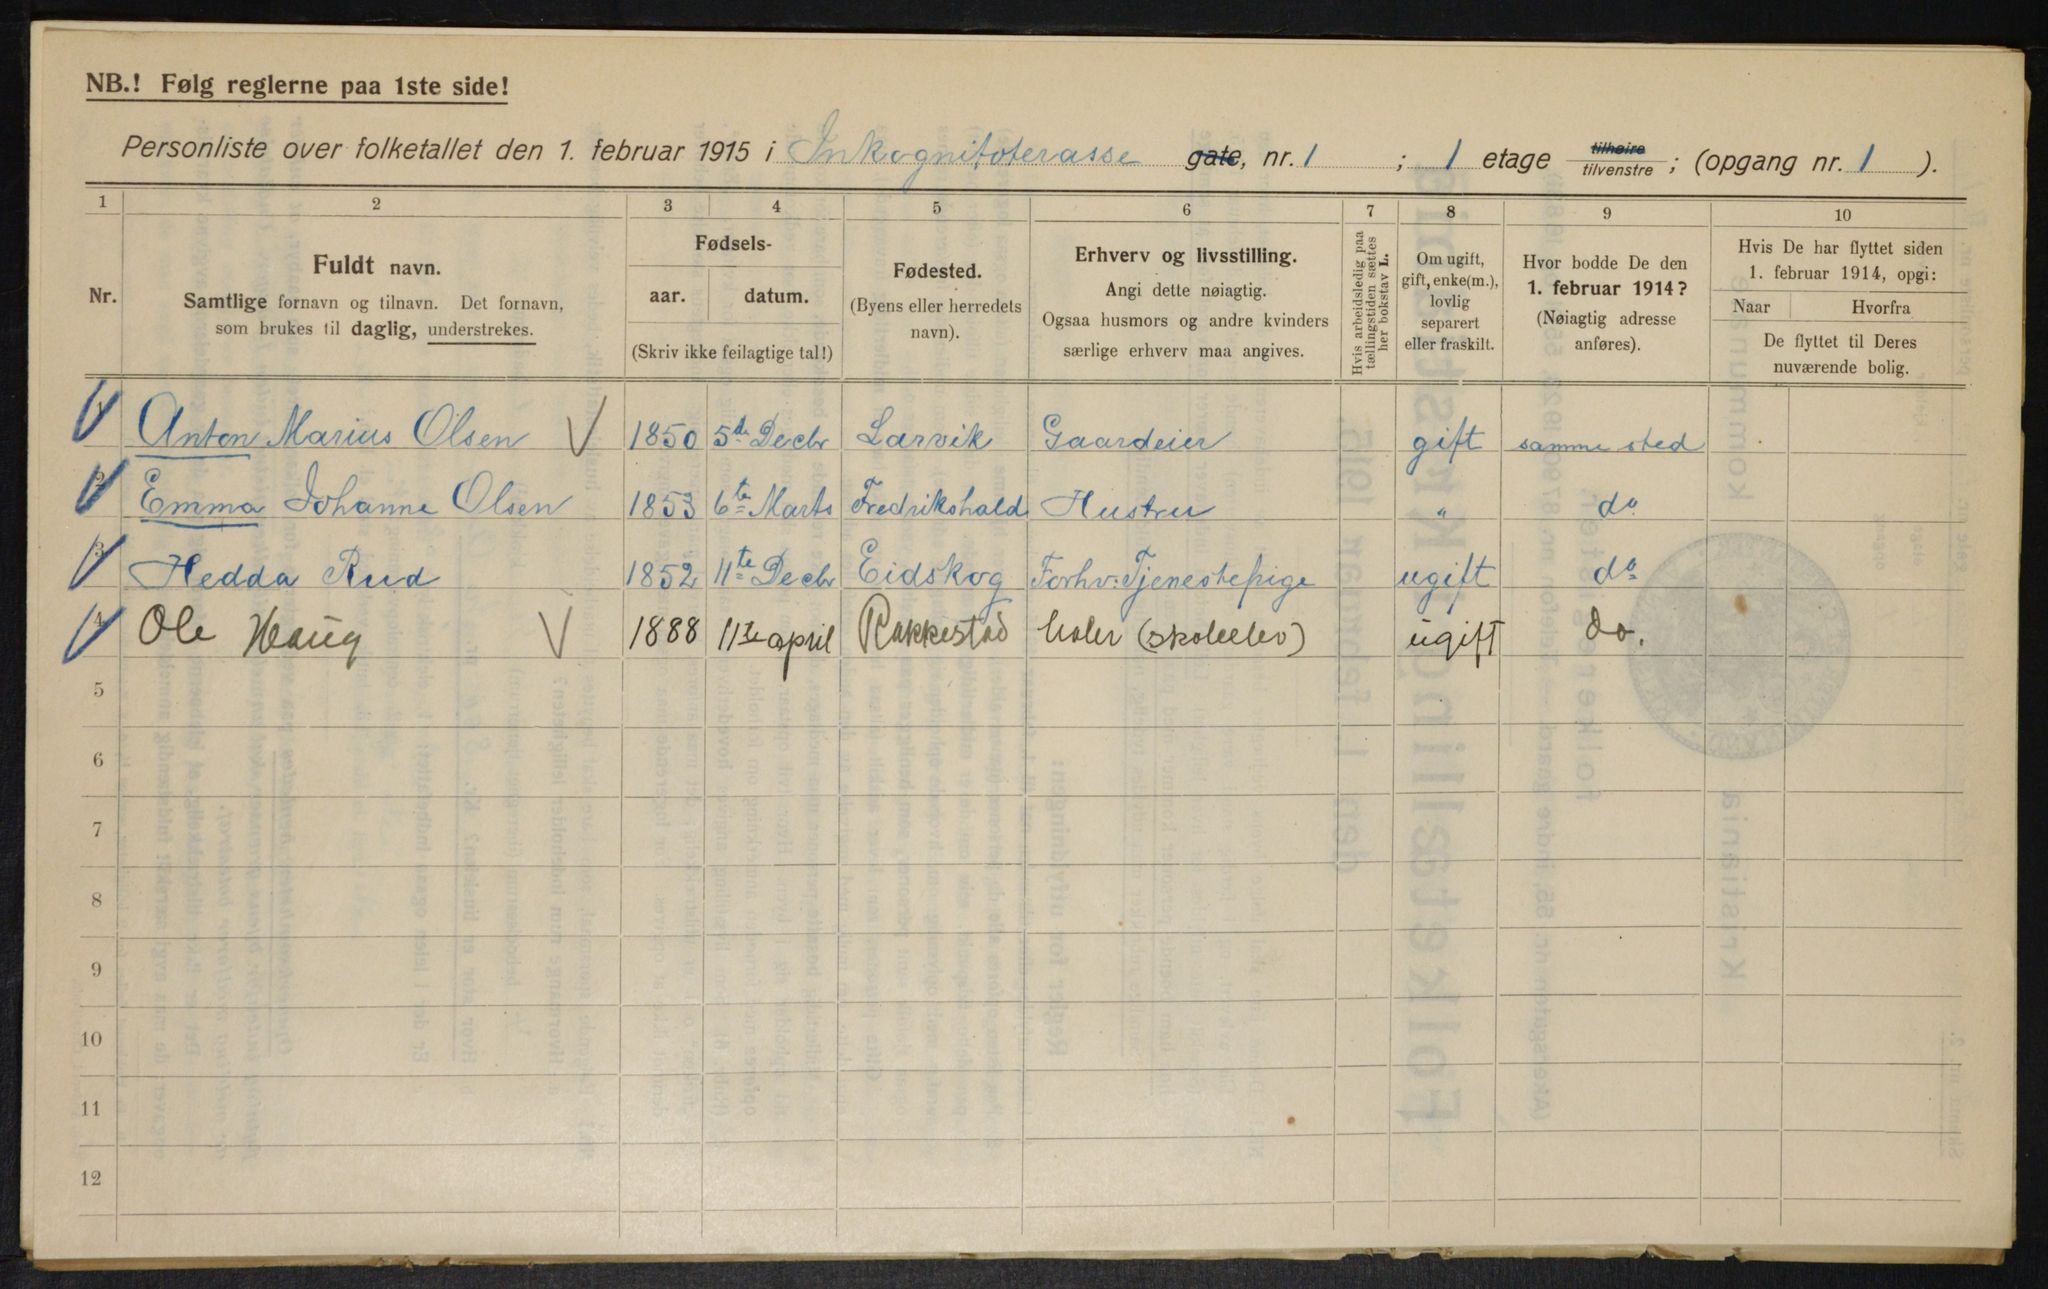 NB.! Følg reglerne paa 1ste side!
Personliste over folketallet den 1. februar 1915 i Inkognitoterasse gate, nr. 1 ; 1 etage tilhøire tilvenstre ; (opgang nr. 1 ).
1 2 3 4 5 6 7 8 9 10
Nr.
Fuldt navn.
Samtlige fornavn og tilnavn. Det fornavn,
som brukes til daglig, understrekes.
Fødsels-
aar. datum.
(Skriv ikke feilagtige tal!)
Fødested.
(Byens eller herredets
navn).
Erhverv og livsstilling.
Angi dette nøiagtig.
Ogsaa husmors og andre kvinders
særlige erhverv maa angives.
Hvis arbeidsledig paa
tællingstiden sættes
her bokstav L.
Om ugift,
gift, enke(m.),
lovlig
separert
eller fraskilt.
Hvor bodde De den
1. februar 1914?
(Nøiagtig adresse
anføres).
Hvis De har flyttet siden
1. februar 1914, opgi:
Naar Hvorfra
De flyttet til Deres
nuværende bolig.
1 Anton Marius Olsen 1850 5d Decbr Larvik Gaardeier gift samme sted
2 Emma Johanne Olsen 1853 6te Marts Fredrikshald Hustru " do
3 Hedda Rud 1852 11te Decbr Eidskog Forhv: Tjenestepige ugift do
4 Ole Haug 1888 11te april Rakkestad (skoleelev) ugift do.
5
6
7
8
9
10
11
12